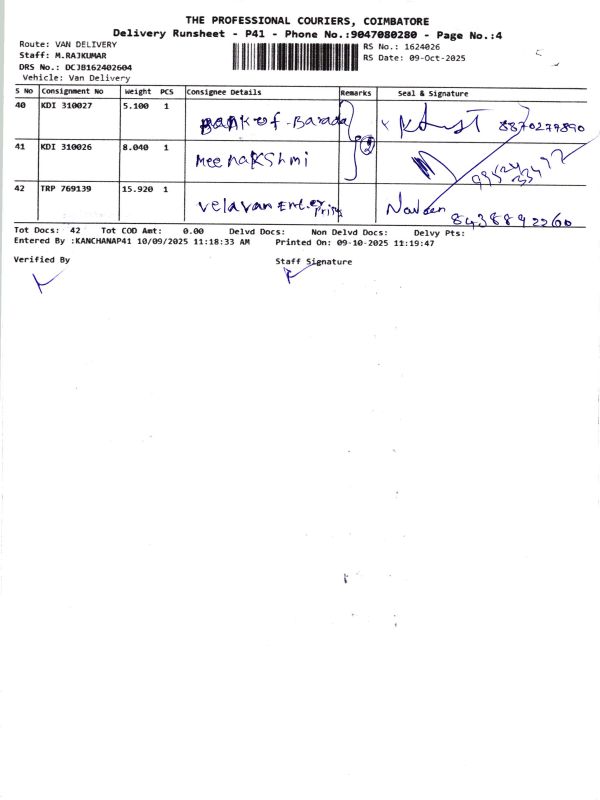 THE PROFESSIONAL COURIERS, COIMBATORE
Delivery Runsheet - P41 - Phone No.:9047080280 - Page No.:4
Route: VAN DELIVERY
RS No.: 1624026
Staff: M.RAJKUMAR
RS Date: 09-Oct-2025
DRS No.: DCJB162402604
Vehicle: Van Delivery
S No Consignment No Weight PCS Consignee Details Remarks Seal & Signature
40 KDI 310027 5.100 1 Bank of Baroda 8870279890
41 KDI 310026 8.040 1 Meenakshmi
42 TRP 769139 15.920 1 Velavan Enterprise Naveen 8438892260
Tot Docs: 42 Tot COD Amt: 0.00 Delvd Docs: Non Delvd Docs: Delvy Pts:
Entered By :KANCHANAP41 10/09/2025 11:18:33 AM Printed On: 09-10-2025 11:19:47
Verified By Staff Signature